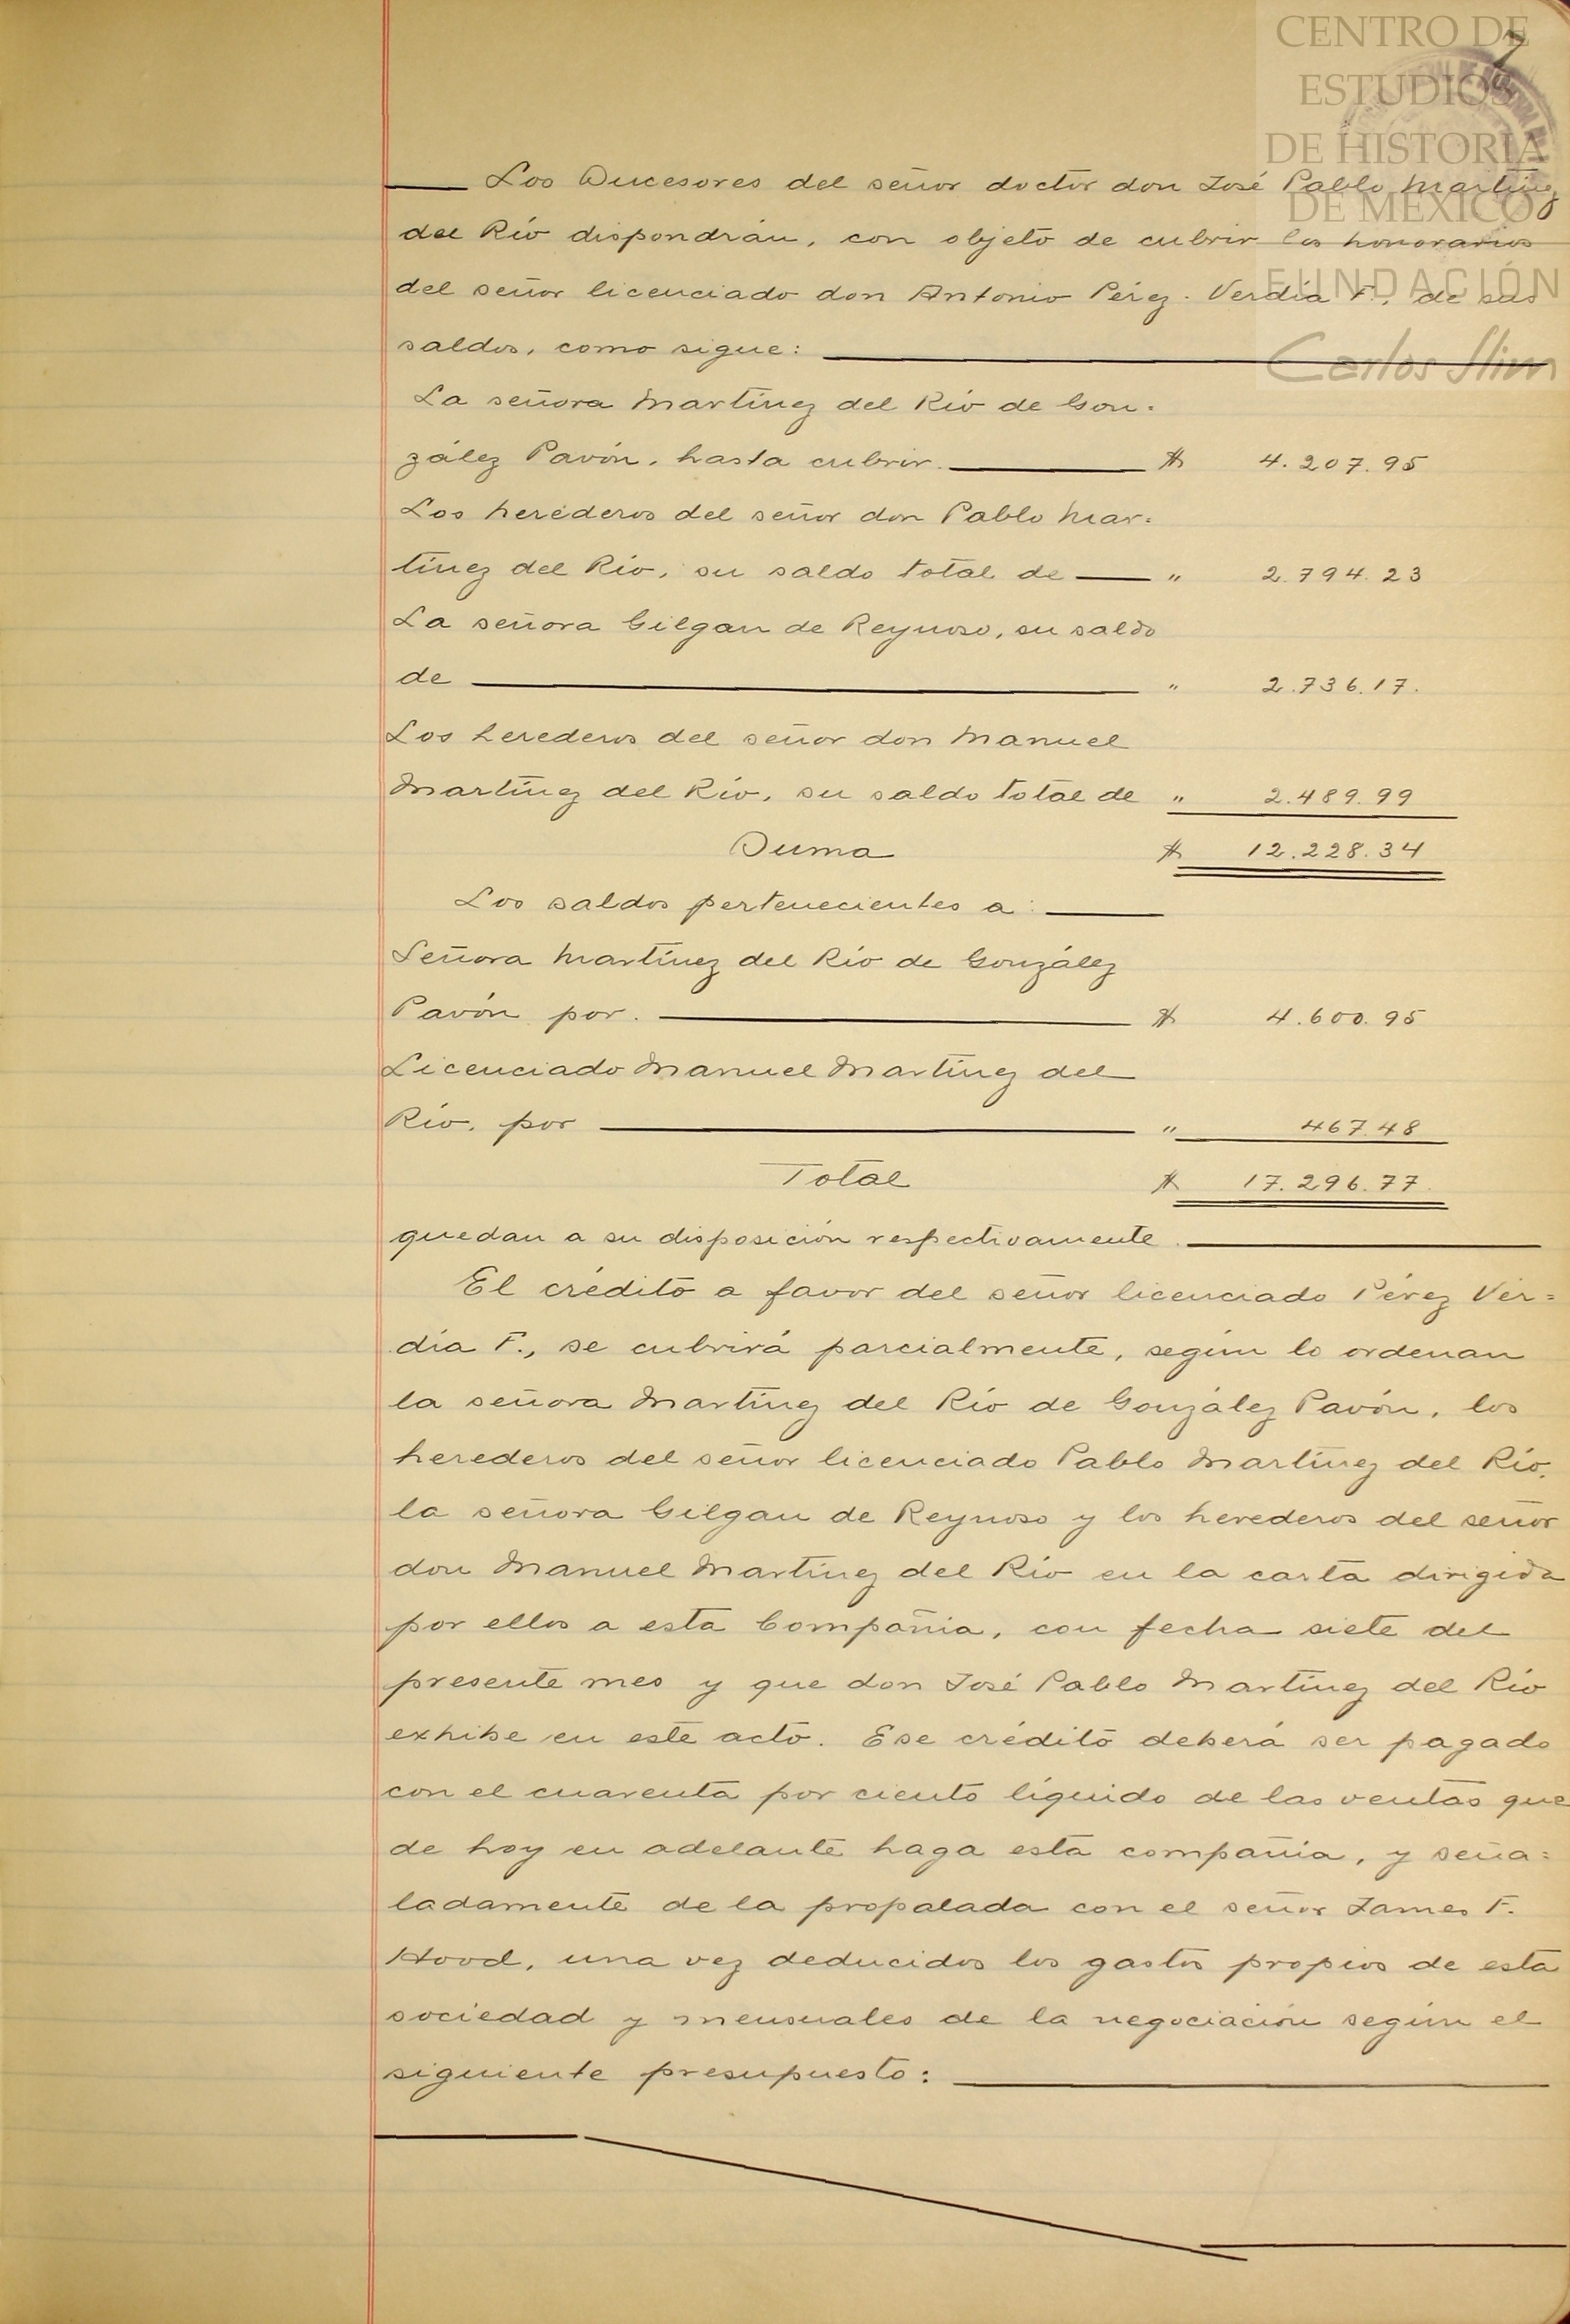 CENTRO DE
ESTUDIOS
DE HISTORIA
DE MEXICO
FUNDACIÓN
Carlos Slim
7
Los Sucesores del señor doctor don José Pablo Martínez
del Río dispondrán, con objeto de cubrir los honorarios
del señor licenciado don Antonio Pérez. Verdía F., de sus
saldos, como sigue:
La señora Martínez del Río de Gon-
zález Pavón, hasta cubrir. $ 4.207.95
Los herederos del señor don Pablo Mar-
tínez del Río, su saldo total de " 2.794.23
La señora Gilgan de Reynoso, su saldo
de " 2.736.17.
Los herederos del señor don Manuel
Martínez del Río, su saldo total de " 2.489.99
Suma $ 12.228.34
Los saldos pertenecientes a:
Señora Martínez del Río de González
Pavón por. $ 4.600.95
Licenciado Manuel Martínez del
Río, por " 467.48
Total $ 17.296.77.
quedan a su disposición respectivamente.
El crédito a favor del señor licenciado Pérez Ver=
día F., se cubrirá parcialmente, según lo ordenan
la señora Martínez del Río de González Pavón, los
herederos del señor licenciado Pablo Martínez del Río,
la señora Gilgan de Reynoso y los herederos del señor
don Manuel Martínez del Río en la carta dirigida
por ellos a esta Compañia, con fecha siete del
presente mes y que don José Pablo Martínez del Río
exhibe en este acto. Ese crédito deberá ser pagado
con el cuarenta por ciento líquido de las ventas que
de hoy en adelante haga esta compañia, y seña=
ladamente de la propalada con el señor James F.
Hood, una vez deducidos los gastos propios de esta
sociedad y mensuales de la negociación según el
siguiente presupuesto: